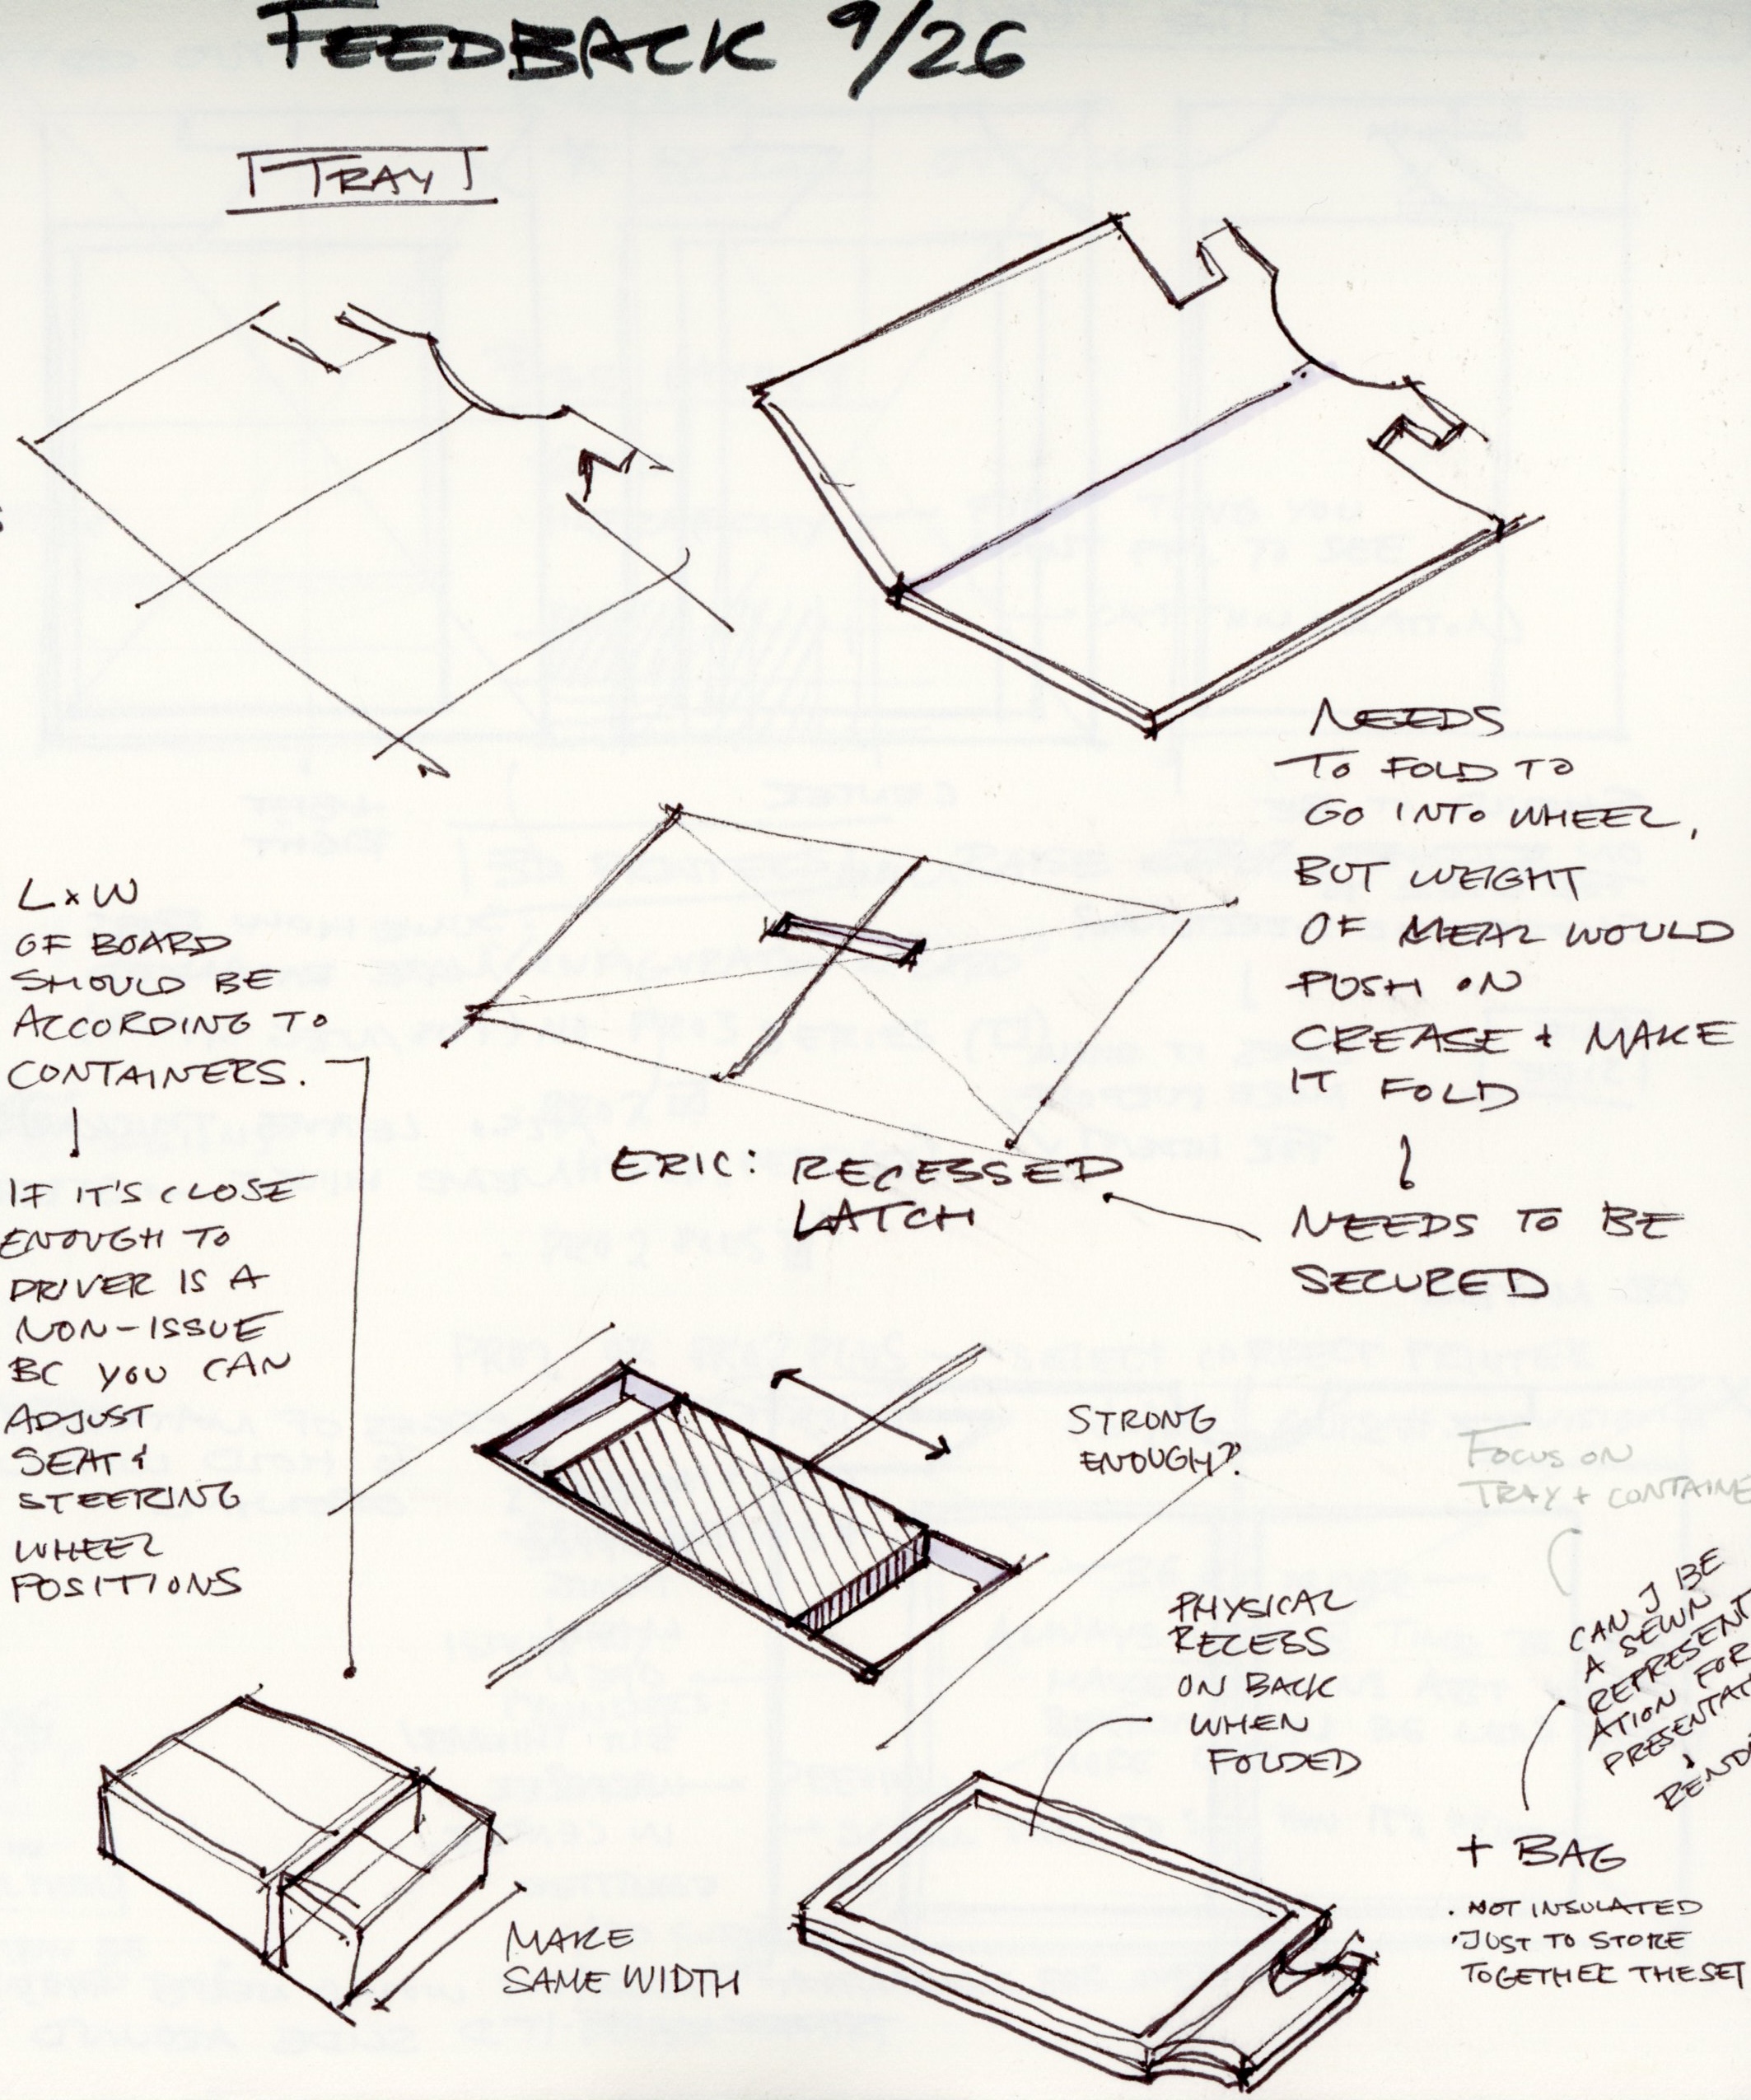 FEEDBACK 9/26
TRAY
NEEDS
TO FOLD TO
GO INTO WHEEL,
BUT WEIGHT
OF MEAL WOULD
PUSH ON
CREASE + MAKE
IT FOLD
NEEDS TO BE
SECURED
ERIC: RECESSED
LATCH
L x W
OF BOARD
SHOULD BE
ACCORDING TO
CONTAINERS.
IF IT'S CLOSE
ENOUGH TO
DRIVER IS A
NON-ISSUE
BC YOU CAN
ADJUST
SEAT +
STEERING
WHEEL
POSITIONS
STRONG
ENOUGH?
FOCUS ON
TRAY + CONTAINE
PHYSICAL
RECESS
ON BACK
WHEN
FOLDED
CAN I BE
A SEWN
REPRESENT
ATION FOR
PRESENTAT
+ BAG
. NOT INSULATED
. JUST TO STORE
TOGETHER THESE
MAKE
SAME WIDTH